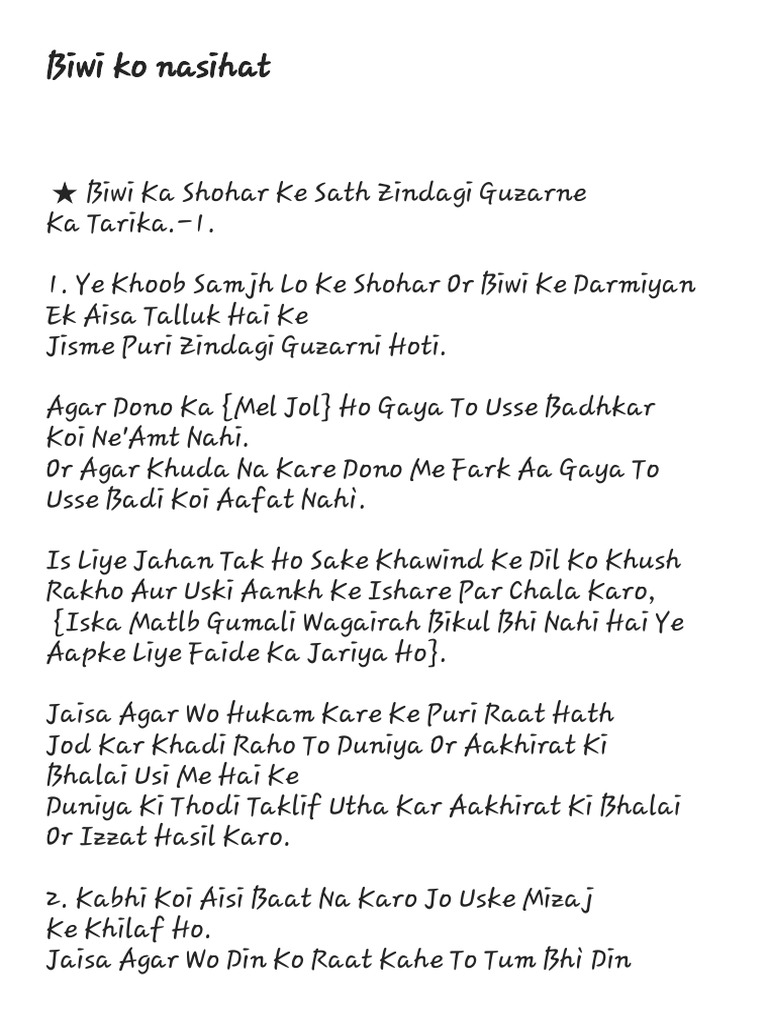 Biwi ko nasihat
★ Biwi Ka Shohar Ke Sath Zindagi Guzarne
Ka Tarika.-1.
1. Ye Khoob Samjh Lo Ke Shohar Or Biwi Ke Darmiyan
Ek Aisa Talluk Hai Ke
Jisme Puri Zindagi Guzarni Hoti.
Agar Dono Ka {Mel Jol} Ho Gaya To Usse Badhkar
Koi Ne'Amt Nahi.
Or Agar Khuda Na Kare Dono Me Fark Aa Gaya To
Usse Badi Koi Aafat Nahì.
Is Liye Jahan Tak Ho Sake Khawind Ke Dil Ko Khush
Rakho Aur Uski Aankh Ke Ishare Par Chala Karo,
{Iska Matlb Gumali Wagairah Bikul Bhi Nahi Hai Ye
Aapke Liye Faide Ka Jariya Ho}.
Jaisa Agar Wo Hukam Kare Ke Puri Raat Hath
Jod Kar Khadi Raho To Duniya Or Aakhirat Ki
Bhalai Usi Me Hai Ke
Duniya Ki Thodi Taklif Utha Kar Aakhirat Ki Bhalai
Or Izzat Hasil Karo.
2. Kabhi Koi Aisi Baat Na Karo Jo Uske Mizaj
Ke Khilaf Ho.
Jaisa Agar Wo Din Ko Raat Kahe To Tum Bhì Din